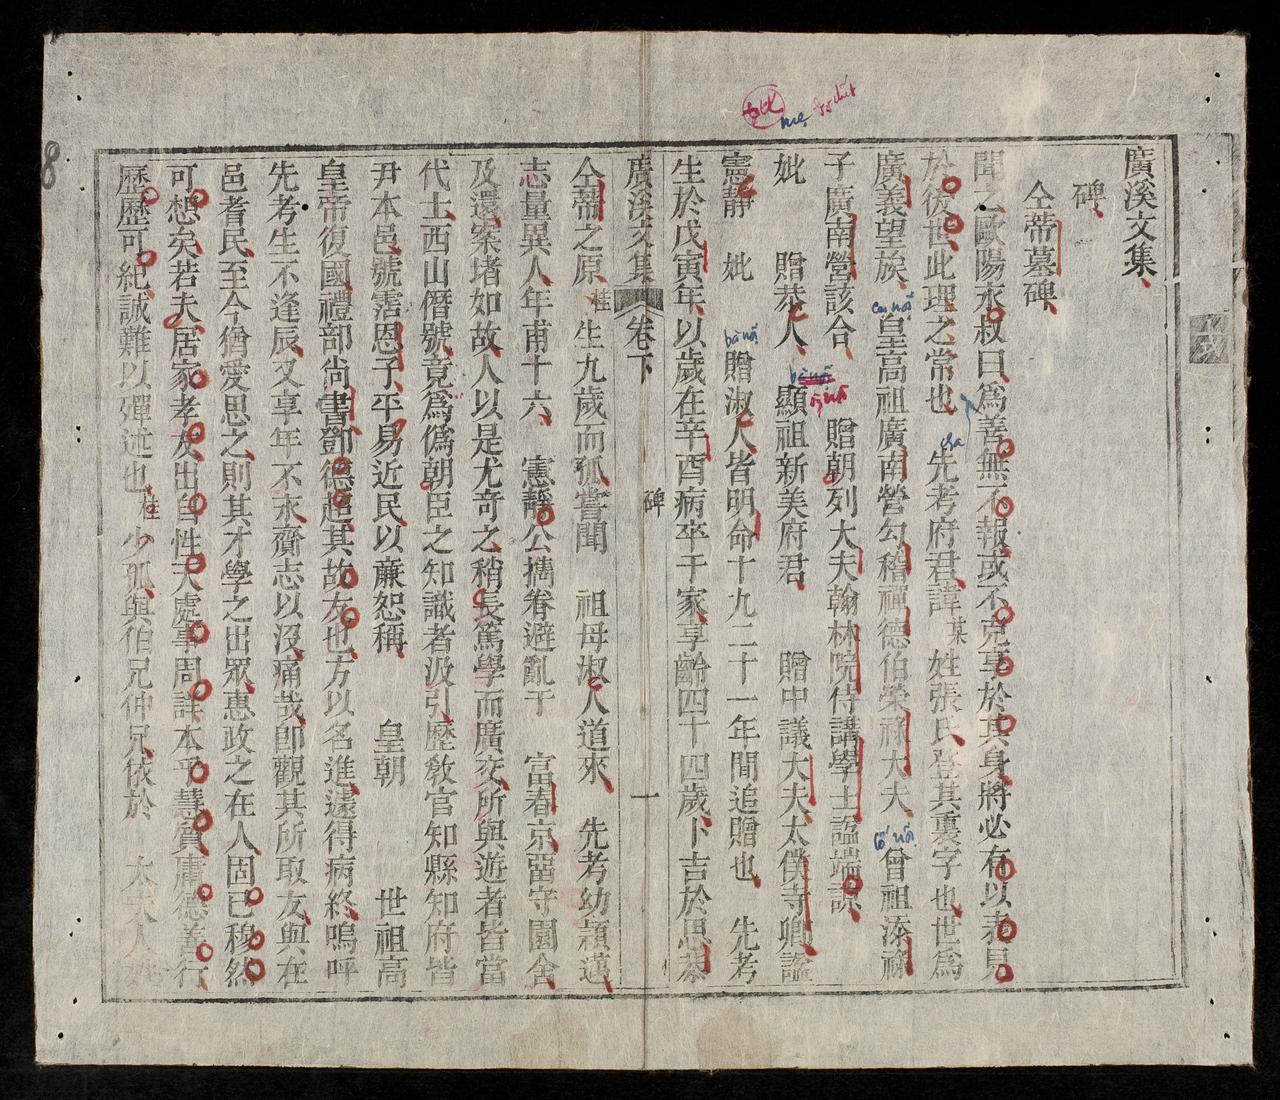 廣溪文集
碑
仝蒂墓碑
聞之歐陽永叔曰為善無不報或不克享於其身將必有以表見
於後世此理之常也 先考府君諱某 姓張氏登其裏字也世為
廣義望族 皇高祖廣南營勾稽禪德伯榮祿大夫 曾祖添祿
子廣南營該合 贈朝列大夫翰林院侍講學士諡端諒
妣 贈恭人 顯祖新美府君 贈中議大夫太僕寺卿諡
憲靜 妣 贈淑人皆明命十九二十一年間追贈也 先考
生於戊寅年以歲在辛酉病卒于家享齡四十四歲卜吉於思恭
廣溪文集 卷下 碑 一
仝蒂之原桂生九歲而孤嘗聞 祖母淑人道來 先考幼穎邁
志量異人年甫十六 憲靜公攜眷避亂于 富春京留守園舍
及還案堵如故人以是尤奇之稍長篤學而廣交所與遊者皆當
代士西山僭號竟為偽朝臣之知識者汲引歷教官知縣知府皆
尹本邑號霑恩子平易近民以廉恕稱 皇朝 世祖高
皇帝復國禮部尚書鄧德超其故友也方以名進遽得病終嗚呼
先考生不逢辰又享年不永齎志以沒痛哉即觀其所取友與在
邑者民至今猶愛思之則其才學之出眾惠政之在人固已穆然
可想矣若夫居家孝友出自性天處事周詳本乎慧質庸德善行
歷歷可紀誠難以殫述也桂少孤與伯兄仲兄依於 太宋人
8
mẹ
cao nội
bà nội
ông nội
cha
cố nội